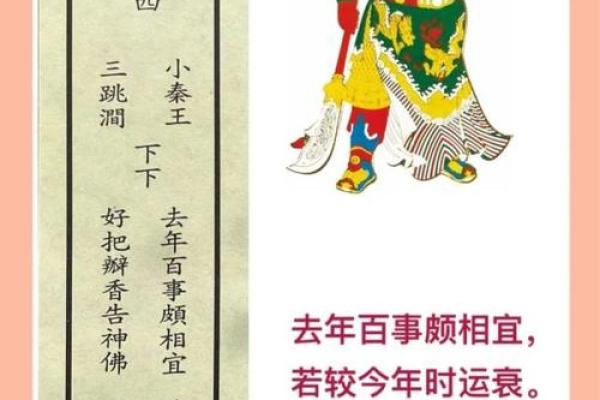 四
小秦王
三跳澗
下下
去年百事頗相宜
好把瓣香告神佛
去年百事颇相宜，
若较今年时运衰。